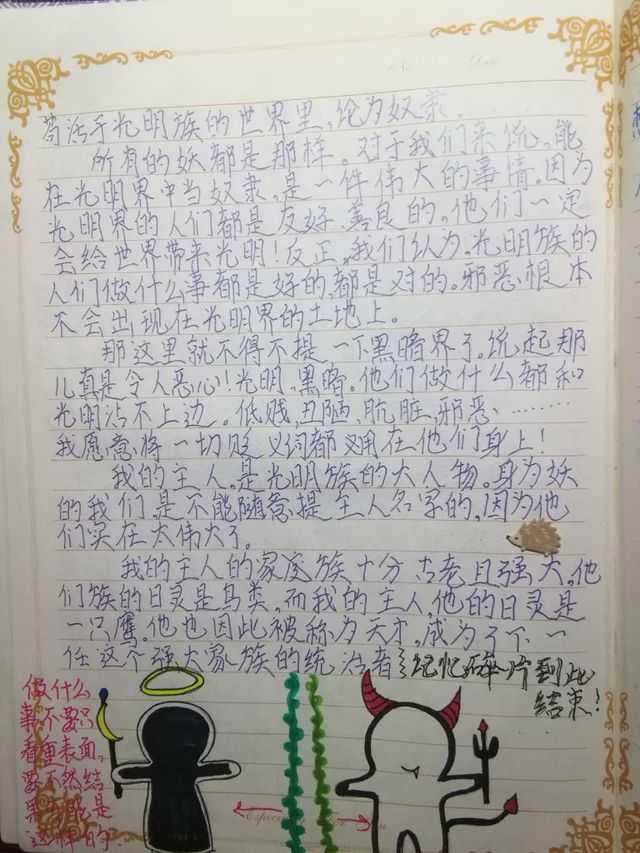 苟活于光明族的世界里,沦为奴隶......
所有的妖都是那样。对于我们来说,能
在光明界中当奴隶,是一件伟大的事情。因为
光明界的人们都是友好,善良的。他们一定
会给世界带来光明!反正,我们认为,光明族的
人们做什么事都是好的,都是对的。邪恶根本
不会出现在光明界的土地上。
那这里就不得不提一下黑暗界了。说起那
儿真是令人恶心!光明,黑暗。他们做什么都和
光明沾不上边。低贱,丑陋,肮脏,邪恶………
我愿意将一切贬义词都用在他们身上!
我的主人,是光明族的大人物。身为妖
的我们是不能随意提主人名字的,因为他
们实在太伟大了。
我的主人的家庭族十分古老且强大。他
们族的日灵是鸟类,而我的主人,他的日灵是
一只鹰。他也因此被称为天才,成为了下一
任这个强大家族的统治者
记忆碎片到此
结束!
做什么
事不要只
看重表面,
要不然结
果可能是
这样的